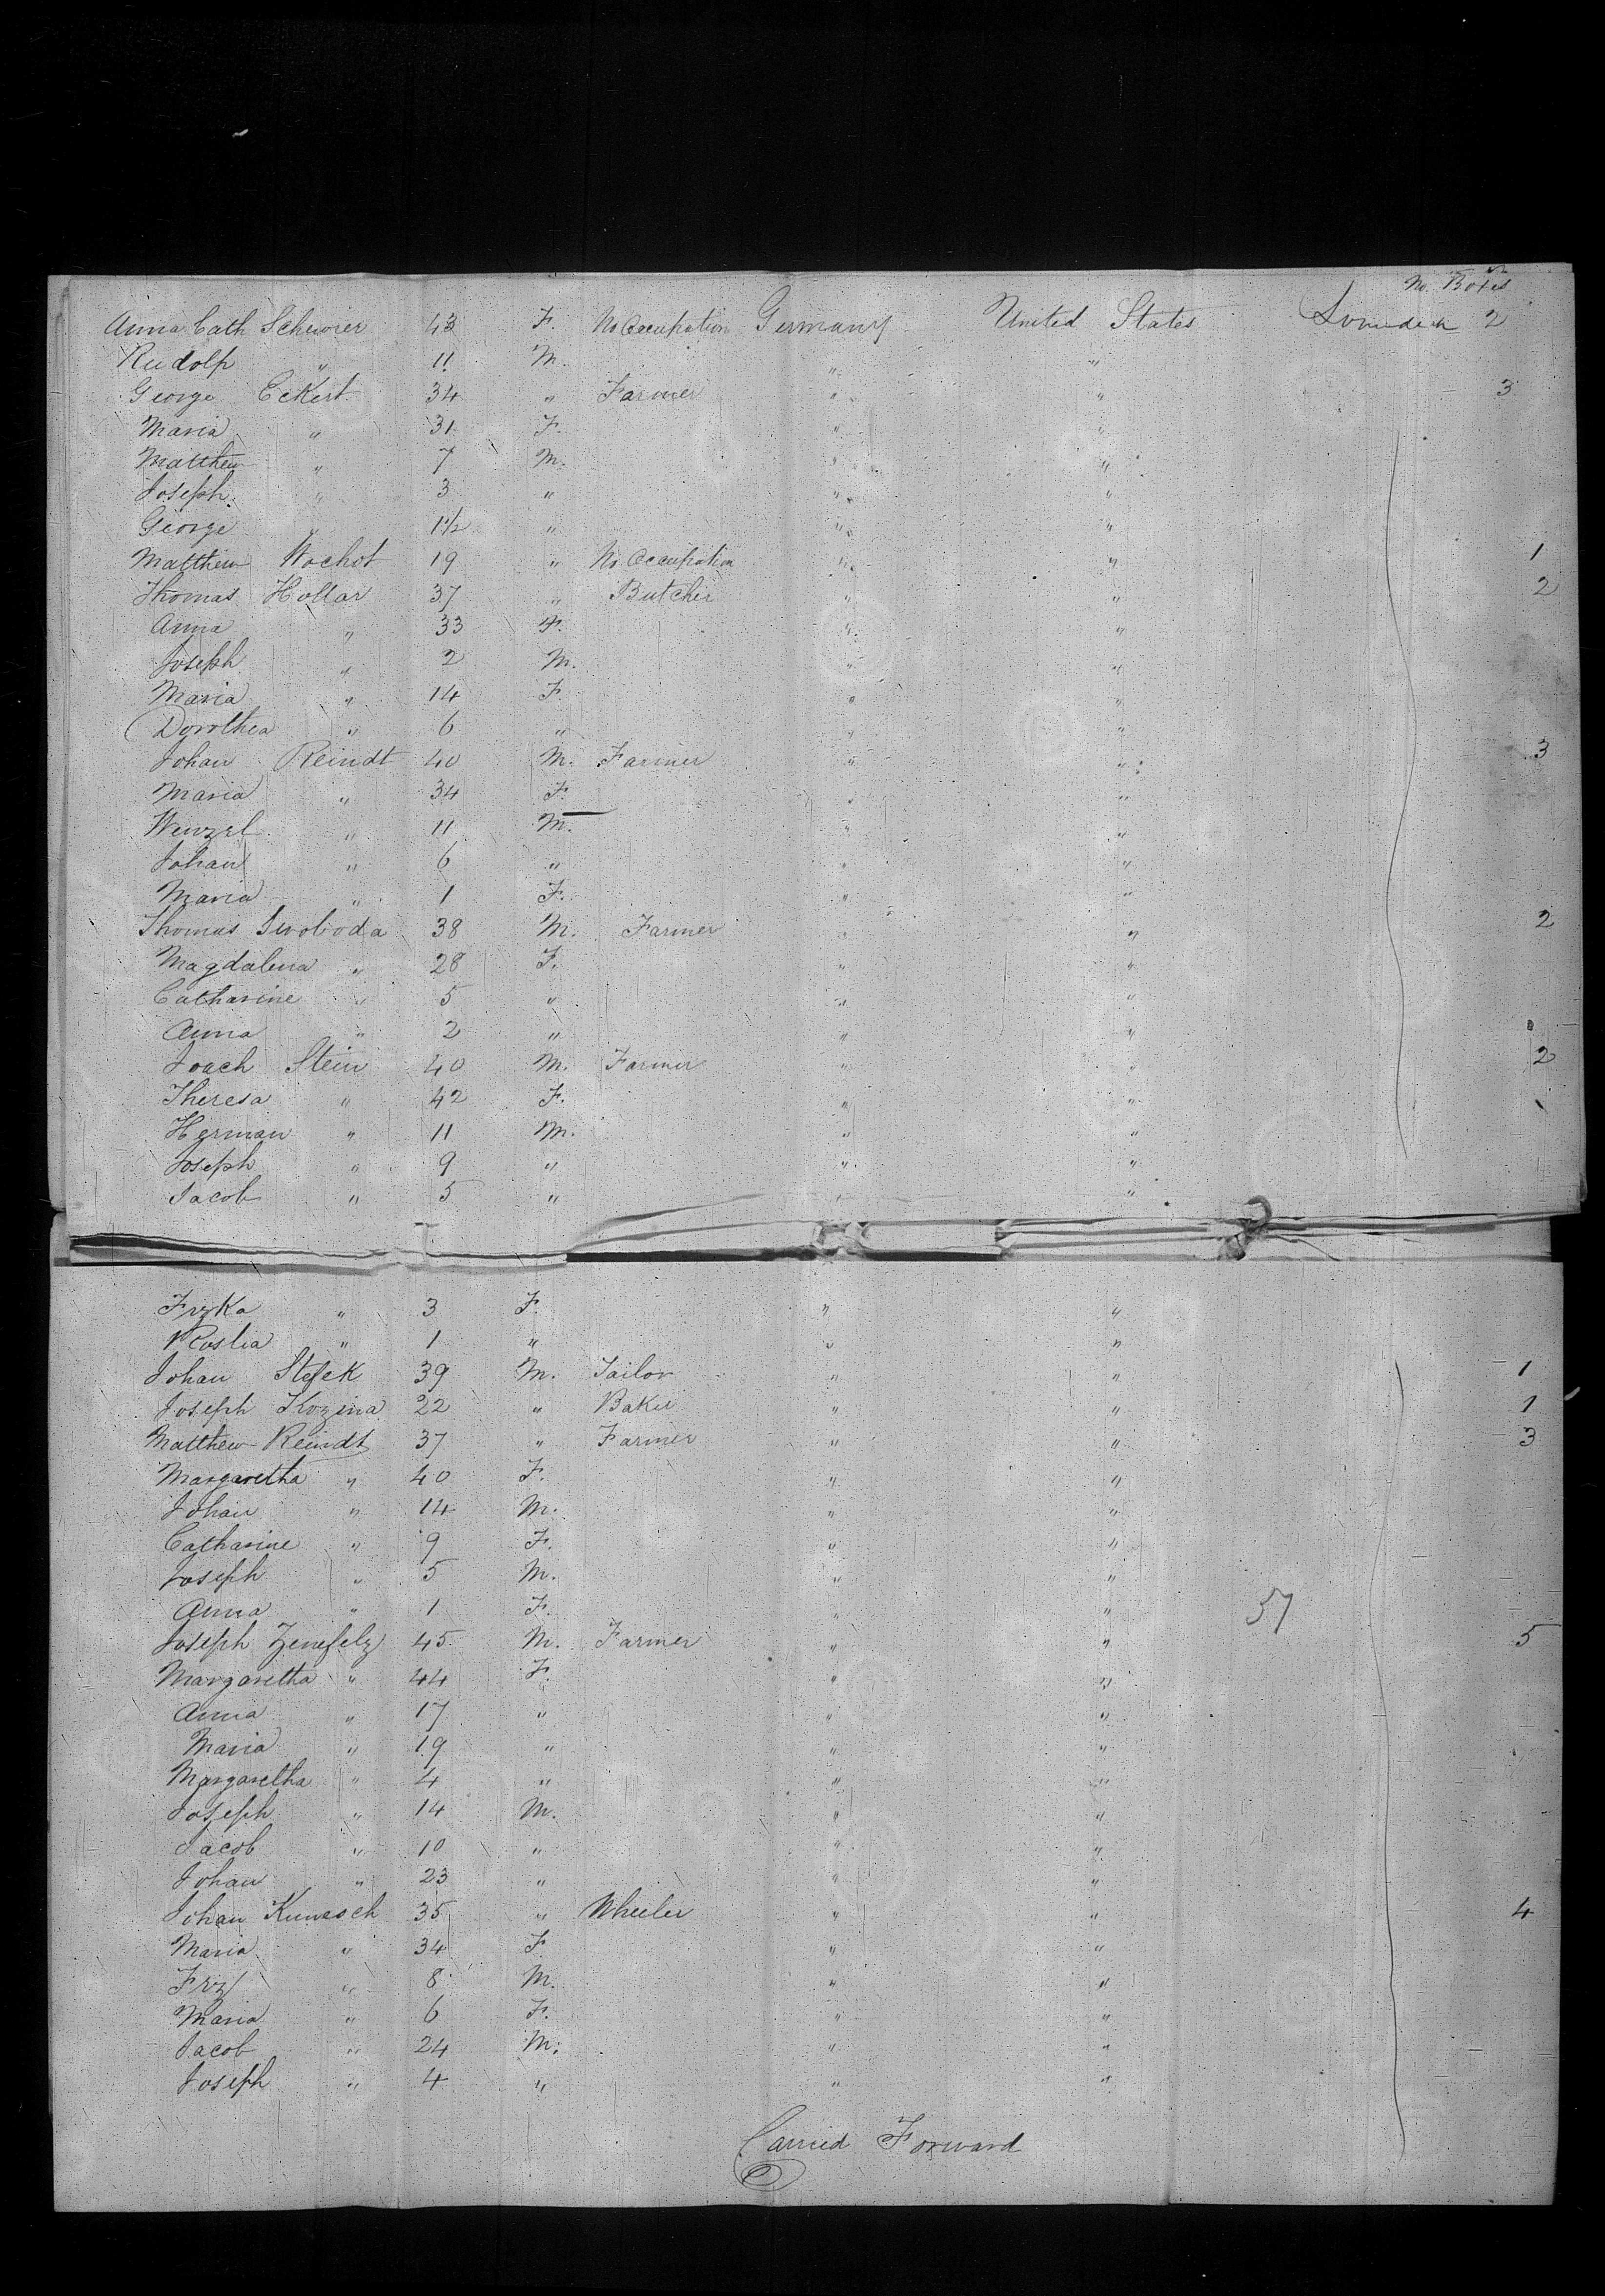 No. Boxes
Anna Cath Scheurer 43 F. No Occupation Germany United States 2
Rudolp " 11 M. " "
George Eckert 34 " Farmer " " 3
Maria " 31 F. " "
Matthew " 7 M. " "
Joseph " 3 " " "
George " 1 1/2 " " "
Matthew Wochot 19 " No Occupation " " 1
Thomas Hollar 37 " Butcher " " 2
Anna " 33 F. " "
Joseph " 2 M. " "
Maria " 14 F. " "
Dorothea " 6 " " "
Johan Reindt 40 M. Farmer " " 3
Maria " 34 F. " "
Wenzel " 11 M. " "
Johan " 6 " " "
Maria " 1 F. " "
Thomas Swoboda 38 M. Farmer " " 2
Magdalena " 28 F. " "
Catharine " 5 " " "
Anna " 2 " " "
Joach Stein 40 M. Farmer " " 2
Theresa " 42 F. " "
Herman " 11 M. " "
Joseph " 9 " " "
Jacob " 5 " " "
Frzka " 3 F. " "
Roslia " 1 " " "
Johan Stefek 39 M. Tailor " " 1
Joseph Kozina 22 " Baker " " 1
Matthew Reindt 37 " Farmer " " 3
Margaretha " 40 F. " "
Johan " 14 M. " "
Catharine " 9 F. " "
Joseph " 5 M. " "
Anna " 1 F. " " 57
Joseph Zenefelz 45 M. Farmer " " 5
Margaretha " 44 F. " "
Anna " 17 " " "
Maria " 19 " " "
Margaretha " 4 " " "
Joseph " 14 M. " "
Jacob " 10 " " "
Johan " 23 " " "
Johan Kunesch 35 " Wheeler " " 4
Maria " 34 F. " "
Frz " 8 M. " "
Maria " 6 F. " "
Jacob " 24 M. " "
Joseph " 4 " " "
Carried Forward